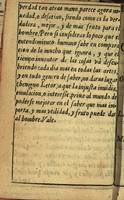 verdad con atras mano parece agora no
uedad, o desatino, siendo como es la ver
dadera, mejor, y de mas fruto para el
hombre. Pero si consideras lo poco que el
entendimiento humano sabe en compara
cion de lo mucho que ignora, y que el
tiempo inuentor de las cosas va descu-
briendo cada dia mas en todas las artes,
y en todo genero de saber, no daras lugar
beneuo lector, a que la injusta inuidia,
emulacion, o interesse, priue al mundo de
poderse mejorar en el saber que mas im-
porta, y mas vtilidad, y fruto puede dar
al hombre. Vale.